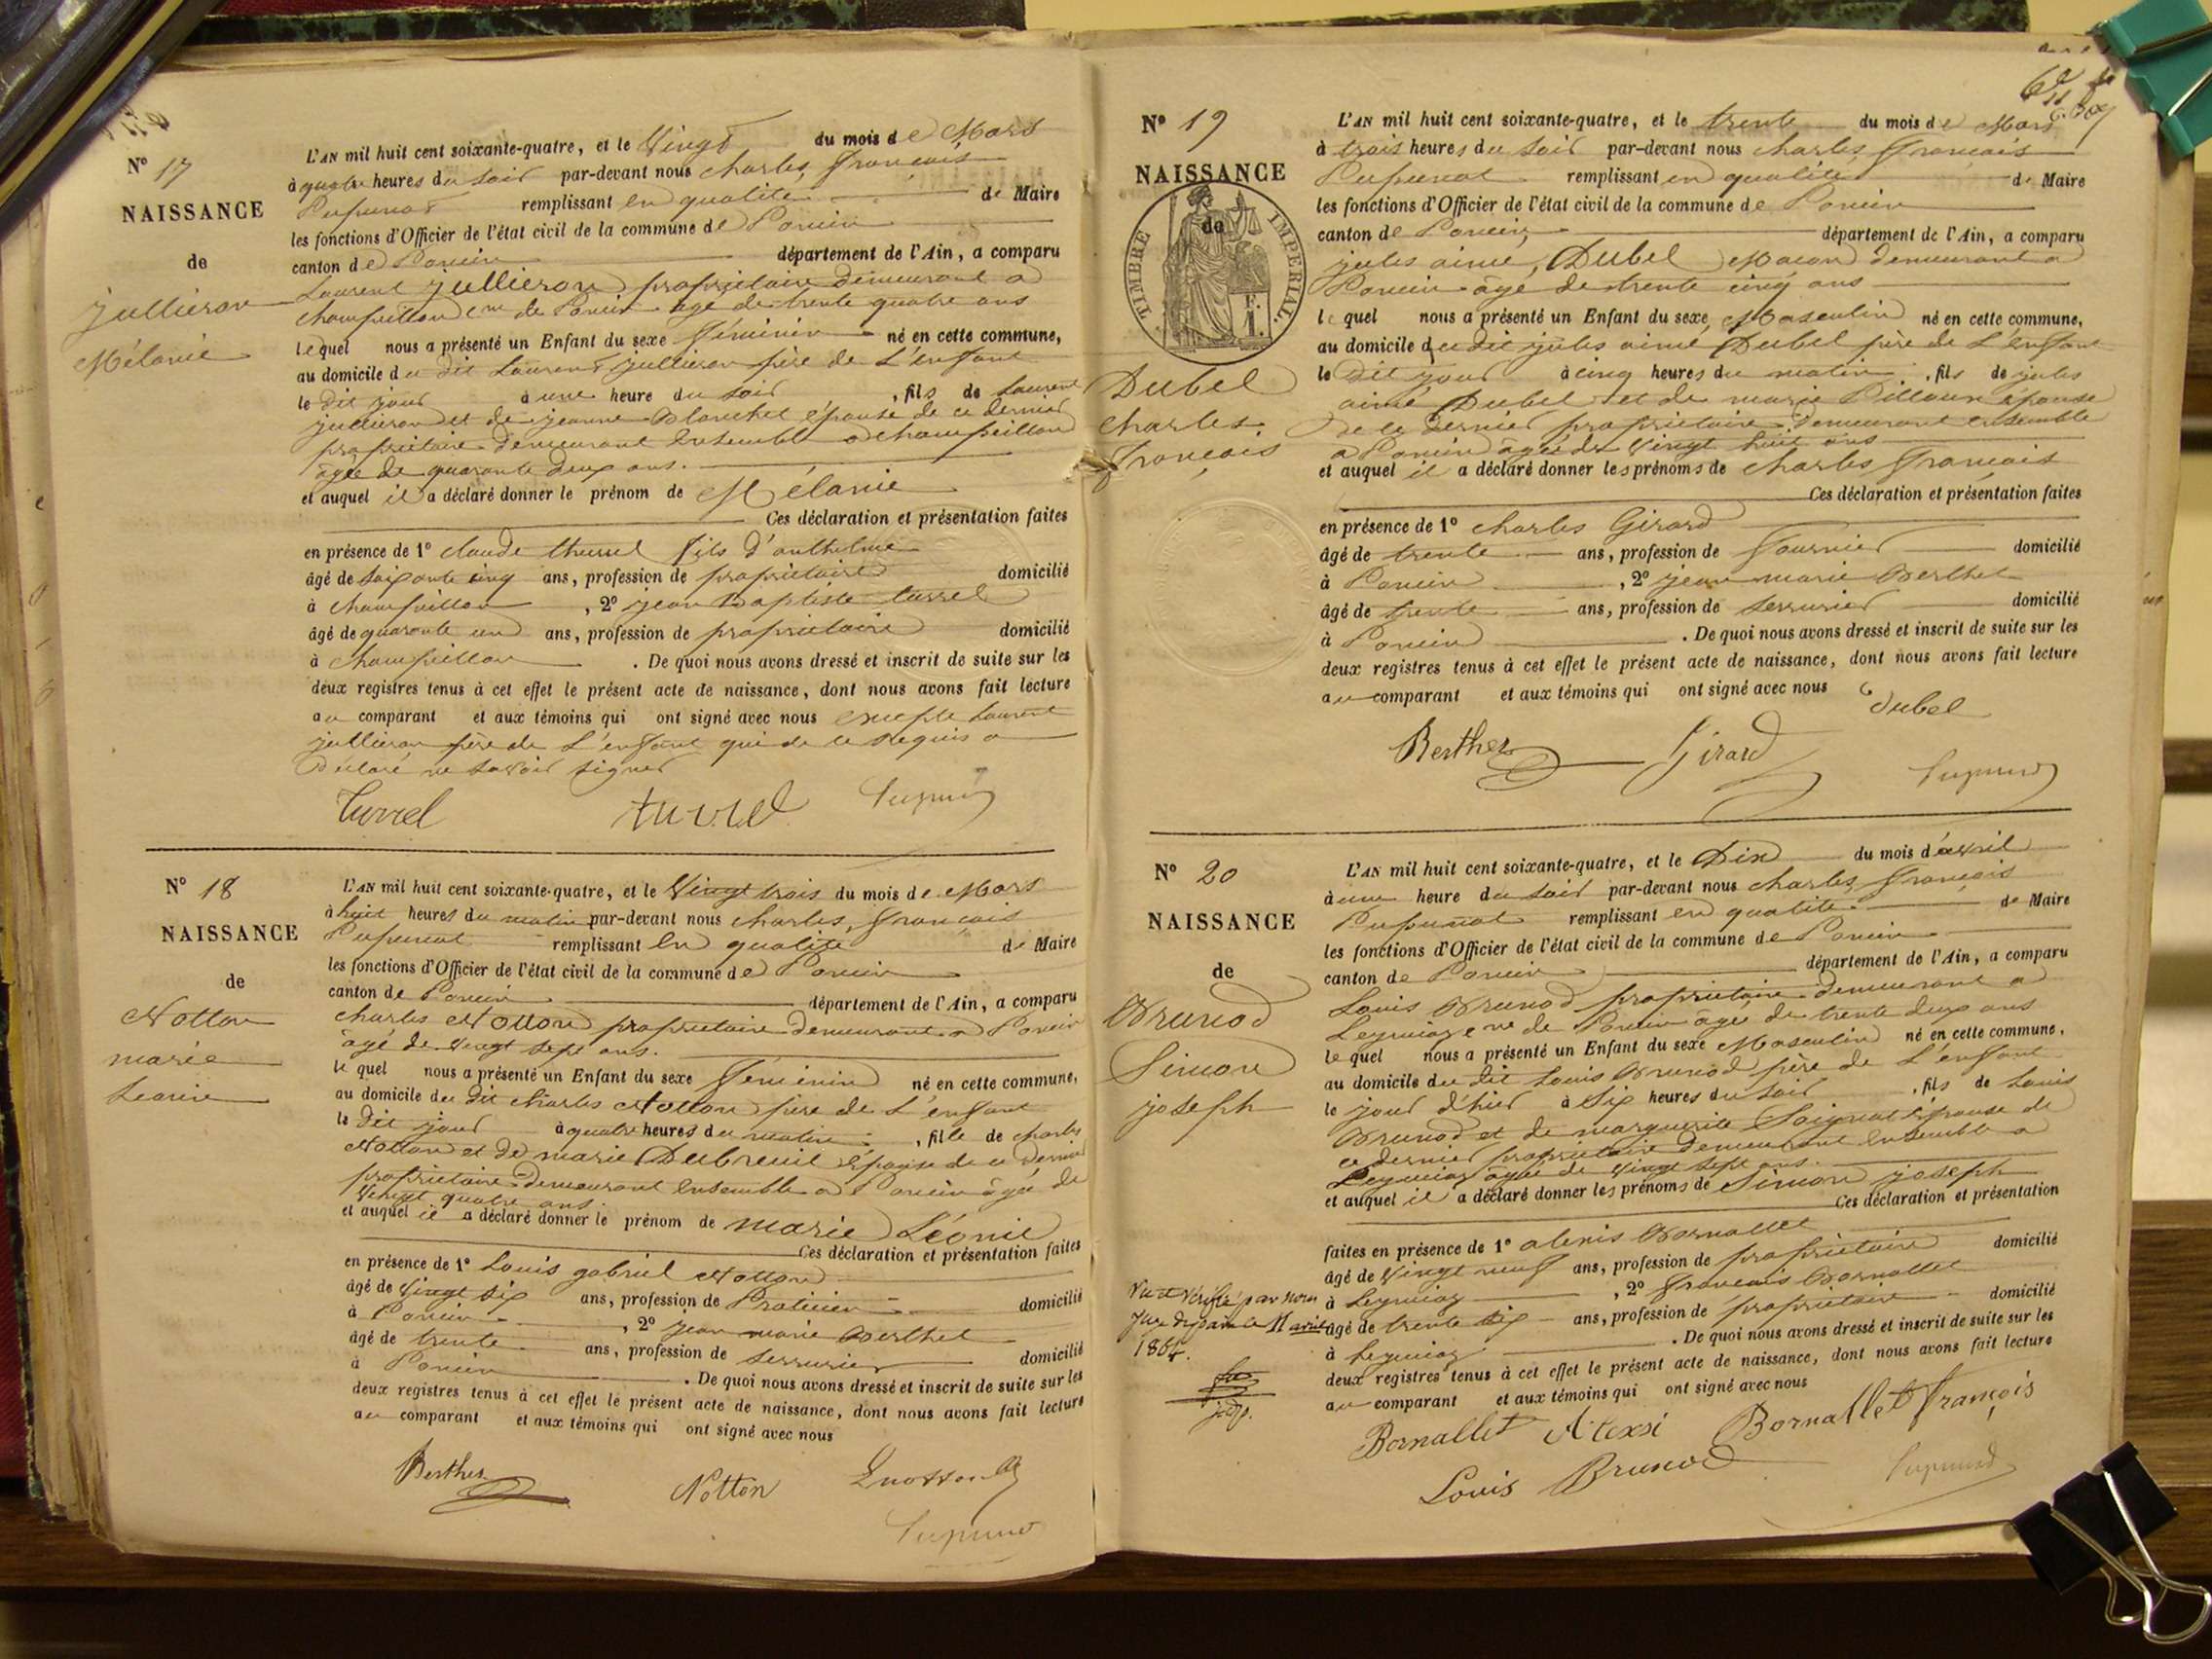 N° 17
NAISSANCE
de
jullieron
Mélanie
L'AN mil huit cent soixante-quatre, et le Vingt du mois de Mars
à quatre heures du soir par-devant nous charles, françois
remplissant en qualité de Maire
les fonctions d'Officier de l'état civil de la commune de Poncin
canton de Poncin département de l'Ain, a comparu
Laurent jullieron propriétaire demeurant a
champeillon cne de Poncin agé de trente quatre ans
lequel nous a présenté un Enfant du sexe féminin né en cette commune,
au domicile du dit Laurent jullieron père de L'enfant
le dit jour à une heure du soir, fils de Laurent
jullieron et de jeanne Blanchet épouse de ce dernier
propriétaire demeurant ensemble a champeillon
âgée de quarante deux ans.
et auquel il a déclaré donner le prénom de Mélanie
Ces déclaration et présentation faites
en présence de 1° claude fils d'anthelme
âgé de soixante cinq ans, profession de propriétaire domicilié
à champeillon, 2° jean Baptiste turrel
âgé de quarante un ans, profession de propriétaire domicilié
à champeillon. De quoi nous avons dressé et inscrit de suite sur les
deux registres tenus à cet effet le présent acte de naissance, dont nous avons fait lecture
au comparant et aux témoins qui ont signé avec nous excepté Laurent
jullieron père de L'enfant qui de ce requis a
déclaré ne savoir signer
Turrel turrel
N° 18
NAISSANCE
de
Notton
marie
Léonie
L'AN mil huit cent soixante-quatre, et le Vingt trois du mois de Mars
à huit heures du matin par-devant nous charles, françois
remplissant en qualité de Maire
les fonctions d'Officier de l'état civil de la commune de Poncin
canton de Poncin département de l'Ain, a comparu
charles Notton propriétaire demeurant a Poncin
âgé de vingt sept ans.
lequel nous a présenté un Enfant du sexe féminin né en cette commune,
au domicile du dit charles Notton père de L'enfant
le dit jour à quatre heures du matin, fille de charles
Notton et de marie Dubreuil épouse de ce dernier
propriétaire demeurant ensemble a Poncin âgée de
vingt quatre ans.
et auquel il a déclaré donner le prénom de marie Léonie
Ces déclaration et présentation faites
en présence de 1° Louis gabriel Notton
âgé de vingt six ans, profession de Praticien domicilié
à Poncin, 2° jean marie Berthet
âgé de trente ans, profession de serrurier domicilié
à Poncin. De quoi nous avons dressé et inscrit de suite sur les
deux registres tenus à cet effet le présent acte de naissance, dont nous avons fait lecture
au comparant et aux témoins qui ont signé avec nous
Berthet Notton
N° 19
NAISSANCE
de
TIMBRE IMPERIAL.
Dubel
charles
françois
L'AN mil huit cent soixante-quatre, et le trente du mois de Mars
à trois heures du soir par-devant nous charles, françois
remplissant en qualité de Maire
les fonctions d'Officier de l'état civil de la commune de Poncin
canton de Poncin département de l'Ain, a comparu
jules aimé, Dubel Maçon demeurant a
Poncin âgé de trente cinq ans
lequel nous a présenté un Enfant du sexe Masculin né en cette commune,
au domicile du dit jules aimé Dubel père de L'enfant
le dit jour à cinq heures du matin, fils de jules
aimé Dubel et de marie épouse
de ce dernier propriétaire demeurant ensemble
a Poncin âgée de vingt huit ans
et auquel il a déclaré donner les prénoms de charles françois
Ces déclaration et présentation faites
en présence de 1° charles Girard
âgé de trente ans, profession de fournier domicilié
à Poncin, 2° jean marie Berthet
âgé de trente ans, profession de serrurier domicilié
à Poncin. De quoi nous avons dressé et inscrit de suite sur les
deux registres tenus à cet effet le présent acte de naissance, dont nous avons fait lecture
au comparant et aux témoins qui ont signé avec nous
Dubel
Berthet Girard
N° 20
NAISSANCE
de
Brunod
Simon
joseph
L'AN mil huit cent soixante-quatre, et le Dix du mois d'avril
à une heure du soir par-devant nous charles, françois
remplissant en qualité de Maire
les fonctions d'Officier de l'état civil de la commune de Poncin
canton de Poncin département de l'Ain, a comparu
Louis Brunod propriétaire demeurant a
Leymiaz cne de Poncin âgé de trente deux ans
lequel nous a présenté un Enfant du sexe Masculin né en cette commune,
au domicile du dit Louis Brunod père de L'enfant
le jour d'hier à six heures du soir, fils de Louis
Brunod et de marguerite Soignat épouse de
ce dernier propriétaire demeurant ensemble a
Leymiaz âgée de vingt sept ans.
et auquel il a déclaré donner les prénoms de Simon joseph
Ces déclaration et présentation
faites en présence de 1° alexis Bornallet
âgé de vingt neuf ans, profession de propriétaire domicilié
à Leymiaz, 2° françois Bornallet
âgé de trente six ans, profession de propriétaire domicilié
à Leymiaz. De quoi nous avons dressé et inscrit de suite sur les
deux registres tenus à cet effet le présent acte de naissance, dont nous avons fait lecture
au comparant et aux témoins qui ont signé avec nous
Bornallet Alexsi Bornallet François
Louis Brunod
Vu et vérifié par nous
Juge de paix le 11 avril
1864.